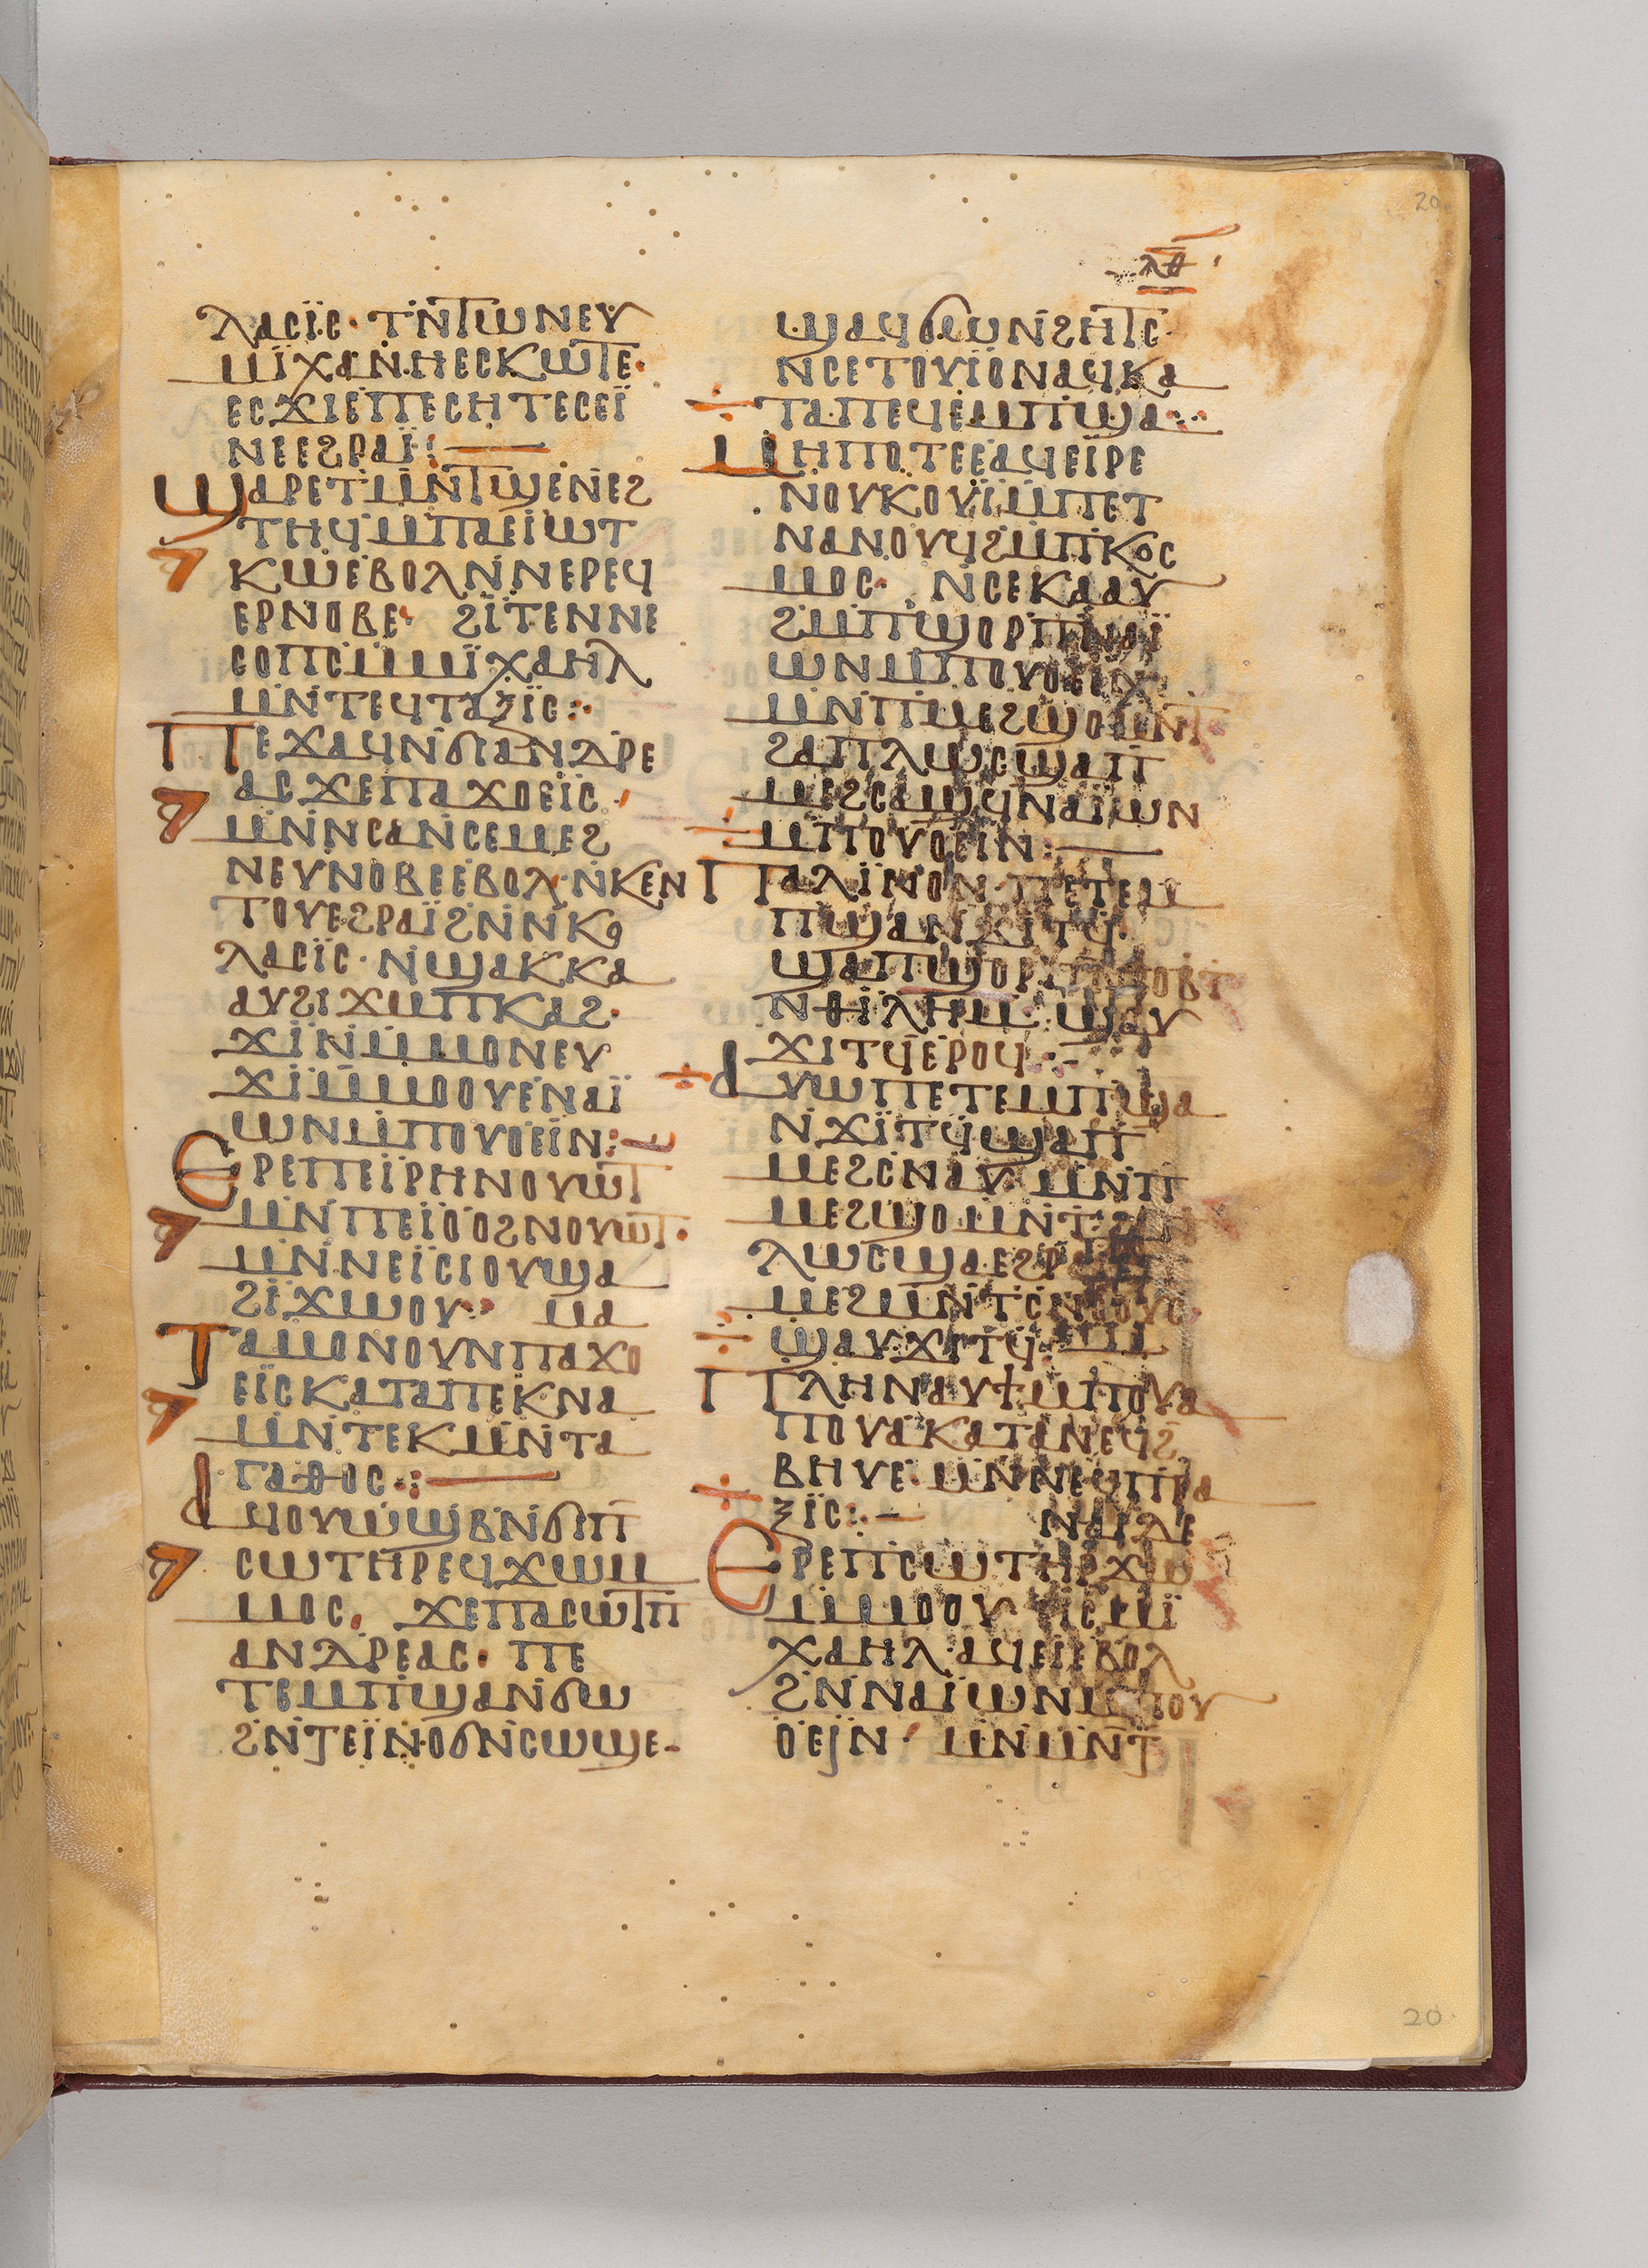 20
ⲗⲑ
ⲗⲁⲥⲓ̈ⲥ· ⲧⲛ̄ⲧⲱⲛⲉⲩ
ⲙⲓ̈ⲭⲁⲛⲏⲉⲥⲕⲱⲧⲉ·
ⲉⲥϫⲓⲉⲡⲉⲥⲏⲧⲉⲥⲉⲓ̈
ⲛⲉⲉϩⲣⲁⲓ̈:—
ϣⲁⲣⲉⲧⲙ̄ⲛ̄ⲧϣⲉⲛⲉϩ
ⲧⲏϥⲙ̄ⲡⲁⲉⲓⲱⲧ
ⲕⲱⲉⲃⲟⲗⲛ̄ⲛⲉⲣⲉϥ
ⲉⲣⲛⲟⲃⲉ· ϩⲓ̈ⲧⲉⲛⲛⲉ
ⲥⲟⲡⲥⲙ̄ⲙⲓ̈ⲭⲁⲏⲗ
ⲙⲛ̄ⲧⲉϥⲧⲁⲝⲓ̈ⲥ:·
ⲡⲉϫⲁϥⲛ̄ϭⲓⲁⲛⲇⲣⲉ
ⲁⲥϫⲉⲡⲁϫⲟⲉⲓ̈ⲥ·
ⲙⲛ̄ⲛ̄ⲥⲁⲛ̄ⲥⲉⲙⲉϩ
ⲛⲉⲩⲛⲟⲃⲉⲉⲃⲟⲗ·ⲛ̄ⲕⲉⲛ
ⲧⲟⲩⲉϩⲣⲁⲓ̈ϩⲛ̄ⲛ̄ⲕⲟ
ⲗⲁⲥⲓ̈ⲥ·ⲛ̄ϣⲁⲕⲕⲁ
ⲁⲩϩⲓϫⲙ̄ⲡⲕⲁϩ·
ϫⲓ̈ⲛ̄ⲙ̄ⲙⲟⲛⲉⲩ
ϫⲓ̈ⲙ̄ⲙⲟⲟⲩⲉⲛⲁⲓ̈
ⲱⲛⲙ̄ⲡⲟⲩⲟⲉⲓ̈ⲛ:
ⲉⲣⲉⲡⲉⲓ̈ⲣⲏⲛⲟⲩⲱⲧ
ⲙⲛ̄ⲡⲉⲓ̈ⲟⲟϩⲛⲟⲩⲱⲧ·
ⲙⲛ̄ⲛⲉⲓ̈ⲥⲓⲟⲩϣⲁ
ϩⲓ̈ϫⲱⲟⲩ: ⲙⲁ
ⲧⲁⲙⲟⲛⲟⲩⲛⲡⲁϫⲟ
ⲉⲓ̈ⲥⲕⲁⲧⲁⲡⲉⲕⲛⲁ
ⲙⲛ̄ⲧⲉⲕⲙⲛ̄ⲧⲁ
ⲅⲁⲑⲟⲥ·:—
ⲁϥⲟⲩⲱϣⲃⲛ̄ϭⲓⲡ
ⲥⲱⲧⲏⲣⲉϥϫⲱⲙ
ⲙⲟⲥ· ϫⲉⲡⲁⲥⲱⲧⲡ
ⲁⲛⲇⲣⲉⲁⲥ· ⲡⲉ
ⲧⲉⲙⲡϣⲁⲛ̄ϭⲱ
ϩⲛ̄ⲧⲉⲓ̈ⲛⲟϭⲛ̄ⲥⲱϣⲉ-
ϣⲁϥϭⲱⲛ̄ϩⲏⲧⲥ·
ⲛⲥⲉⲧⲟⲩⲓ̈ⲟⲛⲁϥⲕⲁ
ⲧⲁ·ⲡⲉϥⲉⲙⲡϣⲁ:·
ⲙⲏⲡⲟⲧⲉⲉⲁϥⲉⲓ̈ⲣⲉ
ⲛⲟⲩⲕⲟⲩⲓ̈ⲙ̄ⲡⲉⲧ
ⲛⲁⲛⲟⲩϥϩⲙ̄ⲡⲕⲟⲥ
ⲙⲟⲥ· ⲛ̄ⲥⲉⲕⲁⲁⲩ
ϩⲙ̄ⲡϣⲟⲣⲡⲛⲁⲓ̈
ⲱⲛⲙ̄ⲡⲟⲩⲟⲉⲓⲛ
ⲙⲛ̄ⲡⲙⲉϩϣⲟⲙⲛⲧ
ϩⲁⲡⲗⲱⲥϣⲁⲡ
ⲙⲉϩⲥⲁϣϥⲛⲁⲓ̈ⲱⲛ
ⲙ̄ⲡⲟⲩⲟⲉⲓⲛ:—
ⲡⲁⲗⲓ̈ⲛⲟⲛ·ⲡⲉⲧⲉⲙ
ⲡϣⲁⲛϫⲓⲧϥ·
ϣⲁⲡϣⲟⲣⲡ
ⲛⲑⲓ̈ⲗⲏⲙ ϣⲁⲩ
ϫⲓⲧϥⲉⲣⲟϥ:·
ⲁⲩⲱⲡⲉⲧⲉⲙⲡϣⲁ
ⲛ̄ϫⲓ̈ⲧϥϣⲁⲡ
ⲙⲉϩⲥⲛⲁⲩ·ⲙⲛ̄ⲡ
ⲙⲉϩϣⲟⲙⲛ̄ⲧ
ⲗⲱⲥϣⲁⲉϩⲣ
ⲙⲉϩⲙⲛ̄ⲧⲥⲛⲟⲟⲩⲥ
ϣⲁⲩϫⲓⲧϥ
ⲡⲗⲏⲛⲁⲩϯⲙ̄ⲡⲟⲩⲁ
ⲡⲟⲩⲁⲕⲁⲧⲁⲛⲉϥϩ
ⲃⲏⲩⲉ·ⲙⲛ̄ⲛⲉϥⲡⲣⲁ
ⲝⲓ̈ⲥ:— ⲛⲁⲓⲇⲉ
ⲉⲣⲉⲡⲥⲱⲧⲏⲣϫⲱ
ⲙ̄ⲙⲟⲟⲩ ⲉⲓⲥⲙⲓ̈
ⲭⲁⲏⲗ·ⲁϥⲉⲓⲉⲃⲟⲗ
ϩⲛ̄ⲛⲁⲓ̈ⲱⲛⲙ̄ⲡⲟⲩ
ⲟⲉⲓⲛ ⲙⲛ̄ⲙⲛ̄ⲧ
20